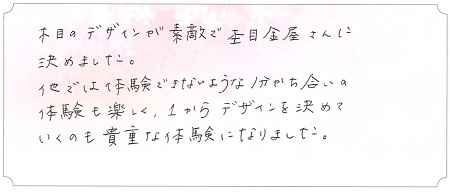 木目のデザインが素敵で杢目金屋さんに
決めました。
他では体験できないような分かち合いの
体験も楽しく、1からデザインを決めて
いくのも貴重な体験になりました。